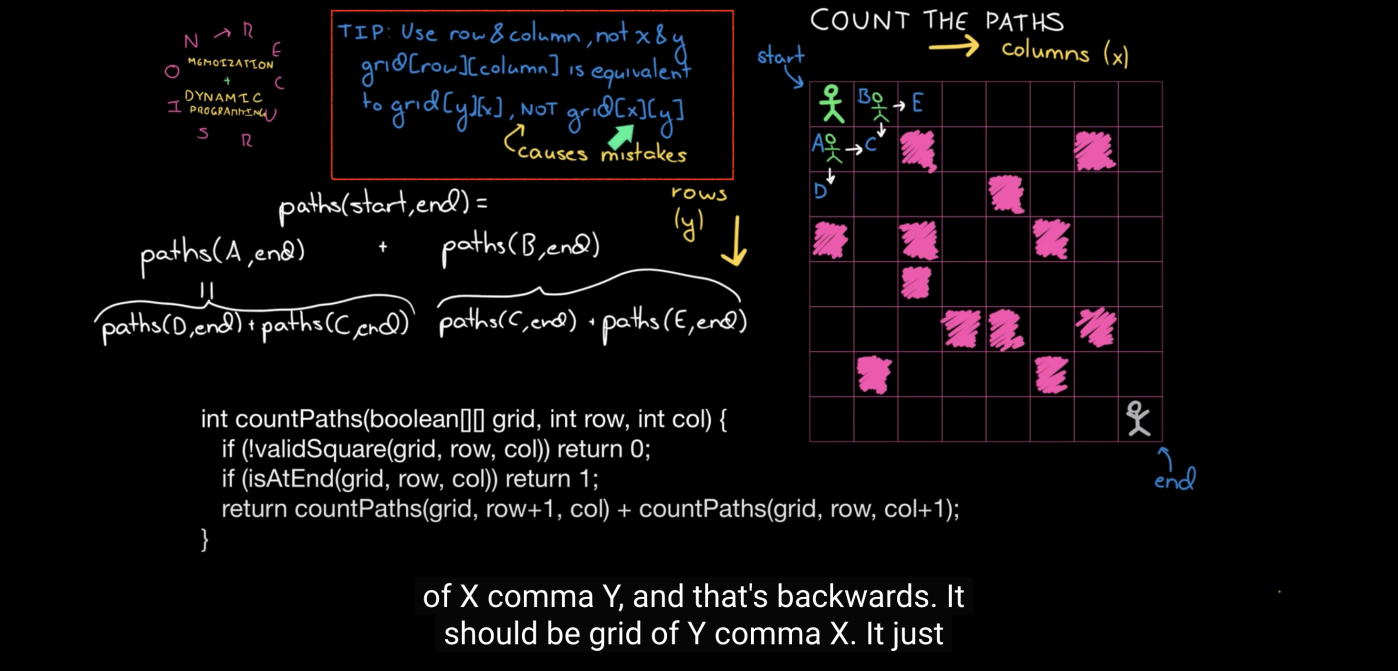 COUNT THE PATHS
N → R
E
C
U
R
S
I
O
MEMOIZATION
+
DYNAMIC
PROGRAMMING
TIP: Use row & column, not x & y
grid[row][column] is equivalent
to grid[y][x], NOT grid[x][y]
causes mistakes
columns (x)
start
rows
(y)
B E
A C
D
end
paths(start,end) =
paths(A,end) + paths(B,end)
||
paths(D,end) + paths(C,end) paths(C,end) + paths(E,end)
int countPaths(boolean[][] grid, int row, int col) {
if (!validSquare(grid, row, col)) return 0;
if (isAtEnd(grid, row, col)) return 1;
return countPaths(grid, row+1, col) + countPaths(grid, row, col+1);
}
of X comma Y, and that's backwards. It
should be grid of Y comma X. It just